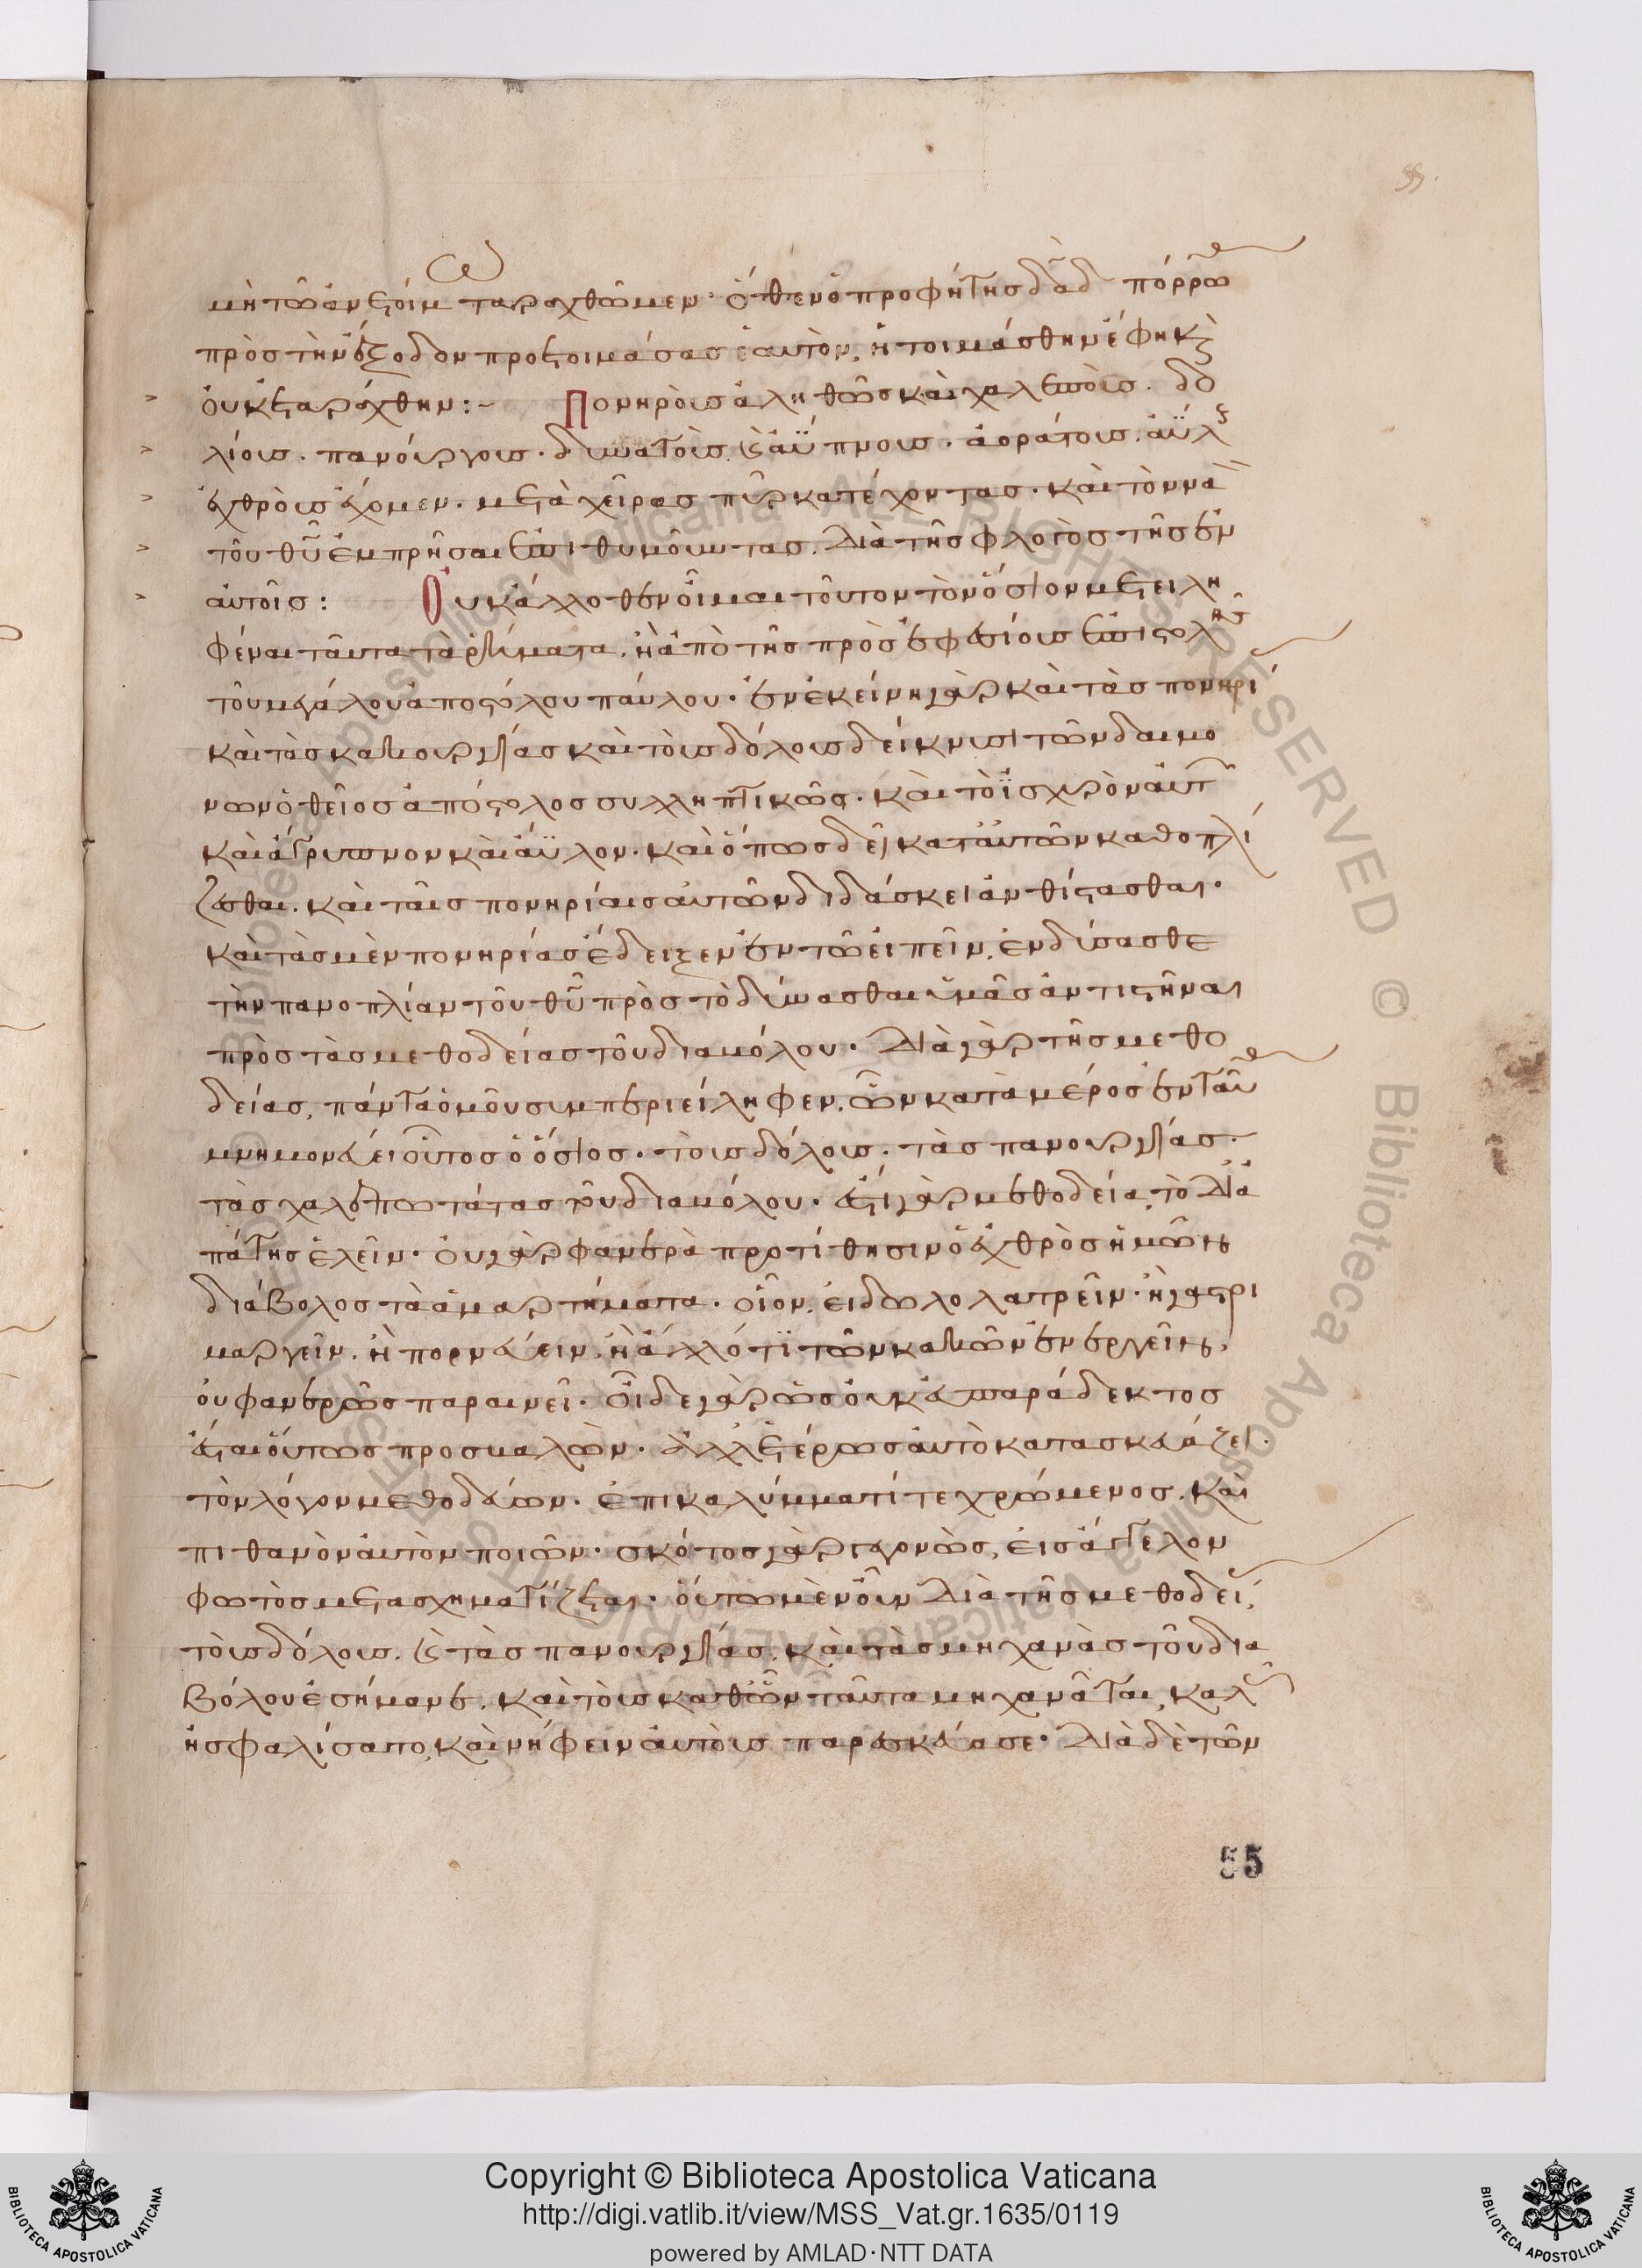 55.
μὴ τῶ ἀνετοίμω ταραχθῶμεν· ὅθεν ὁ προφήτης δᾱδ πόρρωθεν
πρὸς τὴν ἔξοδον προετοιμάσας ἑαυτὸν, ἡτοιμάσθην ἔφη κ(αὶ)
οὐκ ἐταράχθην:- Πονηροῖς ἀληθῶς καὶ χαλεποῖς. δο
λίοις. πανούργοις. δυνατοῖς. κ(αὶ) ἀΰπνοις. ἀοράτοις. ἀΰλοις
ἐχθροῖς ἔχομεν. μετὰ χεῖρας πῦρ κατέχοντας. καὶ τὸν να
τοῦ θῡ ἐμπρῆσαι ἐπιθυμοῦντας. διὰ τῆς φλογὸς τῆς ἐν
αὐτοῖς: Οὐκ ἄλλοθεν οἶμαι τοῦτον τὸν ὅσιον μετειλη
φέναι ταῦτα τὰ ῥήματα. ἢ ἀπὸ τῆς πρὸς ἐφεσίους ἐπιστολῆς
τοῦ μεγάλου ἀποστόλου παύλου· ἐν ἐκείνη γὰρ καὶ τὰς πονηρί
καὶ τὰς κακουργίας καὶ τοὺς δόλους δείκνυσι τῶν δαιμό
νων ὁ θεῖος ἀπόστολος συλληπτικῶς· καὶ τὸ ἰσχυρὸν αὐτ
καὶ ἄγρυπνον καὶ ἄϋλον. καὶ ὅπως δεῖ κατ' αὐτῶν καθοπλί
ζεσθαι. καὶ ταῖς πονηρίαις αὐτῶν διδάσκει ἀνθίστασθαι·
καὶ τὰς μὲν πονηρίας ἔδειξεν ἐν τῶ εἰπεῖν, ἐνδύσασθε
τὴν πανοπλίαν τοῦ θῡ πρὸς τὸ δύνασθαι ὑμᾶς ἀντιστῆναι
πρὸς τὰς μεθοδείας τοῦ διαβόλου· διὰ γὰρ τῆς μεθο
δείας, πάντα ὁμοῦ συμπεριείληφεν. ὧν κατὰ μέρος ἐνταῦθ
μνημονεύει οὗτος ὁ ὅσιος. τοὺς δόλους. τὰς πανουργίας.
τὰς χαλεπωτάτας τοῦ διαβόλου· ἔστι γὰρ μεθοδεία, τὸ δι' ἀ
πάτης ἑλεῖν· οὐ γὰρ φανερὰ προτίθησιν ὁ ἐχθρὸς ἡμῶν
διάβολος τὰ ἁμαρτήματα· οἷον, εἰδωλολατρεῖν· ἢ γαστρι
μαργεῖν. ἢ πορνεύειν, ἢ ἄλλό τι τῶν κακῶν ἐνεργεῖν,
οὐ φανερῶς παραινεῖ· οἶδε γὰρ ὡς οὐκ εὐπαράδεκτος
ἔσται οὕτως προσβαλὼν. ἀλλ' ἑτέρως αὐτὸ κατασκευάζει.
τὸν λόγον μεθοδεύων· ἐπικαλύμματί τε χρώμενος. καὶ
πιθανὸν αὐτὸν ποιῶν· σκότος γὰρ γεγονὼς, εἰς ἄγγελον
φωτὸς μετασχηματίζεται· οὕτω μὲν οὖν διὰ τῆς μεθοδεί
τοὺς δόλους. κ(αὶ) τὰς πανουργίας. καὶ τὰς μηχανὰς τοῦ δια
βόλου ἐσήμανε. καὶ τοὺς καθ' ὧν ταῦτα μηχανᾶται, καλ
ἠσφαλίσατο, καὶ νήφειν αὐτοὺς παρεσκεύασε· διὰ δὲ τῶν
55
Copyright © Biblioteca Apostolica Vaticana
http://digi.vatlib.it/view/MSS_Vat.gr.1635/0119
powered by AMLAD·NTT DATA